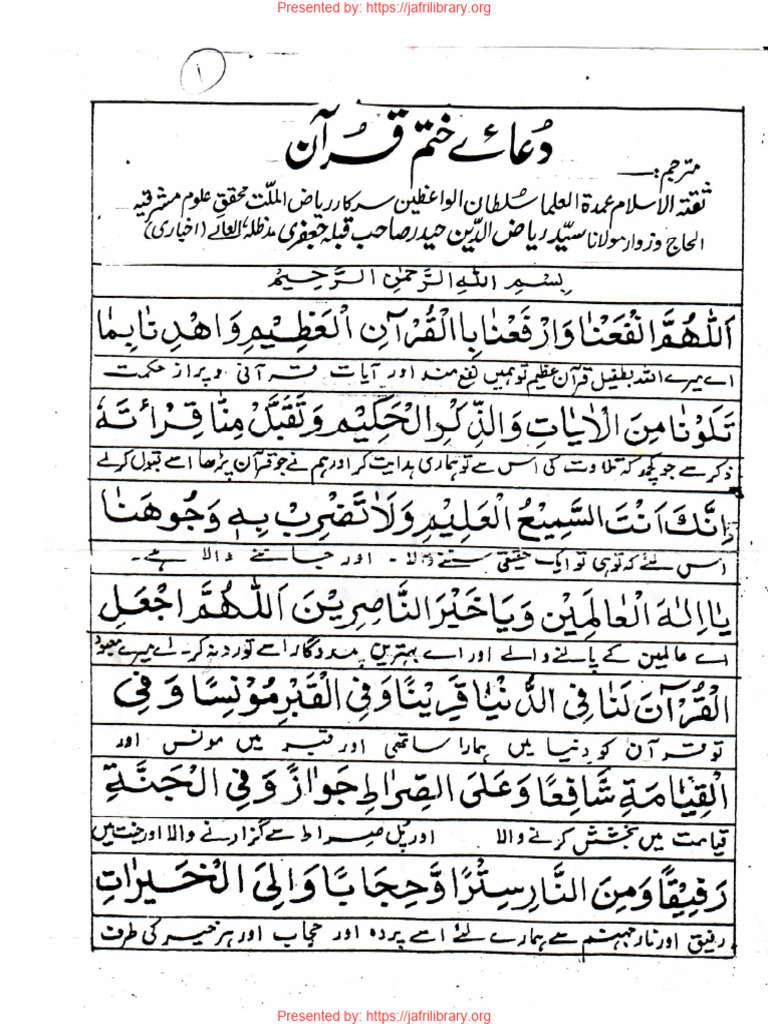 Presented by: https://jafrilibrary.org
۱
دُعائے ختم قرآن
مترجم:
ثقتہ الاسلام عمدۃ العلما سُلطان الواعظین سرکار ریاض الملّت محقق علوم مشرقیہ
الحاج و زوار مولانا سیّد ریاض الدّین حیدر صاحب قبلہ جعفری مدظلہٗ العالے (اخباری)
بِسْمِ اللهِ الرَّحْمٰنِ الرَّحِیْمِ
اَللّٰهُمَّ انْفَعْنَا وَارْفَعْنَا بِاالْقُرْآنِ الْعَظِیْمِ وَاهْدِنَا بِمَا
اے میرے اللہ بطفیل قرآن عظیم تو ہمیں نفع مند اور آیات قرآنی و پراز حکمت
تَلَوْنَا مِنَ الْاٰیَاتِ وَالذِّكْرِ الْحَكِیْمِ وَتَقَبَّلْ مِنَّا قِرْأتَهٗ
ذکر سے جو کچھ کہ تلاوت کی اس سے تو ہماری ہدایت کر اور ہم نے جو قرآن پڑھا اسے قبول کرلے
اِنَّكَ اَنْتَ السَّمِیْعُ الْعَلِیْمِ وَلَا تَضْرِبْ بِهٖ وَجُوهَنَا
اس لئے کہ تو ہی تو ایک حقیقی سننے والا - اور جاننے والا ہے۔
یَا اِلٰهَ الْعَالَمِیْنَ وَیَا خَیْرَ النَّاصِرِیْنَ اَللّٰهُمَّ اجْعَلِ
اے عالمین کے پالنے والے اور اے بہترین مددگار اسے تو رد نہ کر۔ اے میرے معبود
الْقُرْآنَ لَنَا فِی الدُّنْیَا قَرِیْنًا وَفِی الْقَبْرِ مُوْنِسًا وَفِی
تو قرآن کو دنیا میں ہمارا ساتھی اور قبر میں مونس اور
الْقِیَامَةِ شَافِعًا وَعَلَی الصِّرَاطِ جَوَازً وَفِی الْجَنَّةِ
قیامت میں بخشش کرنے والا اور پُل صراط سے گزارنے والا اور جنت میں
رَفِیْقًا وَمِنَ النَّارِ سِتْرًا وَّحِجَابًا وَاِلَی الْخَیْرَاتِ
رفیق اور نار جہنم سے ہمارے لئے اسے پردہ اور حجاب اور ہر خیر کی طرف
Presented by: https://jafrilibrary.org